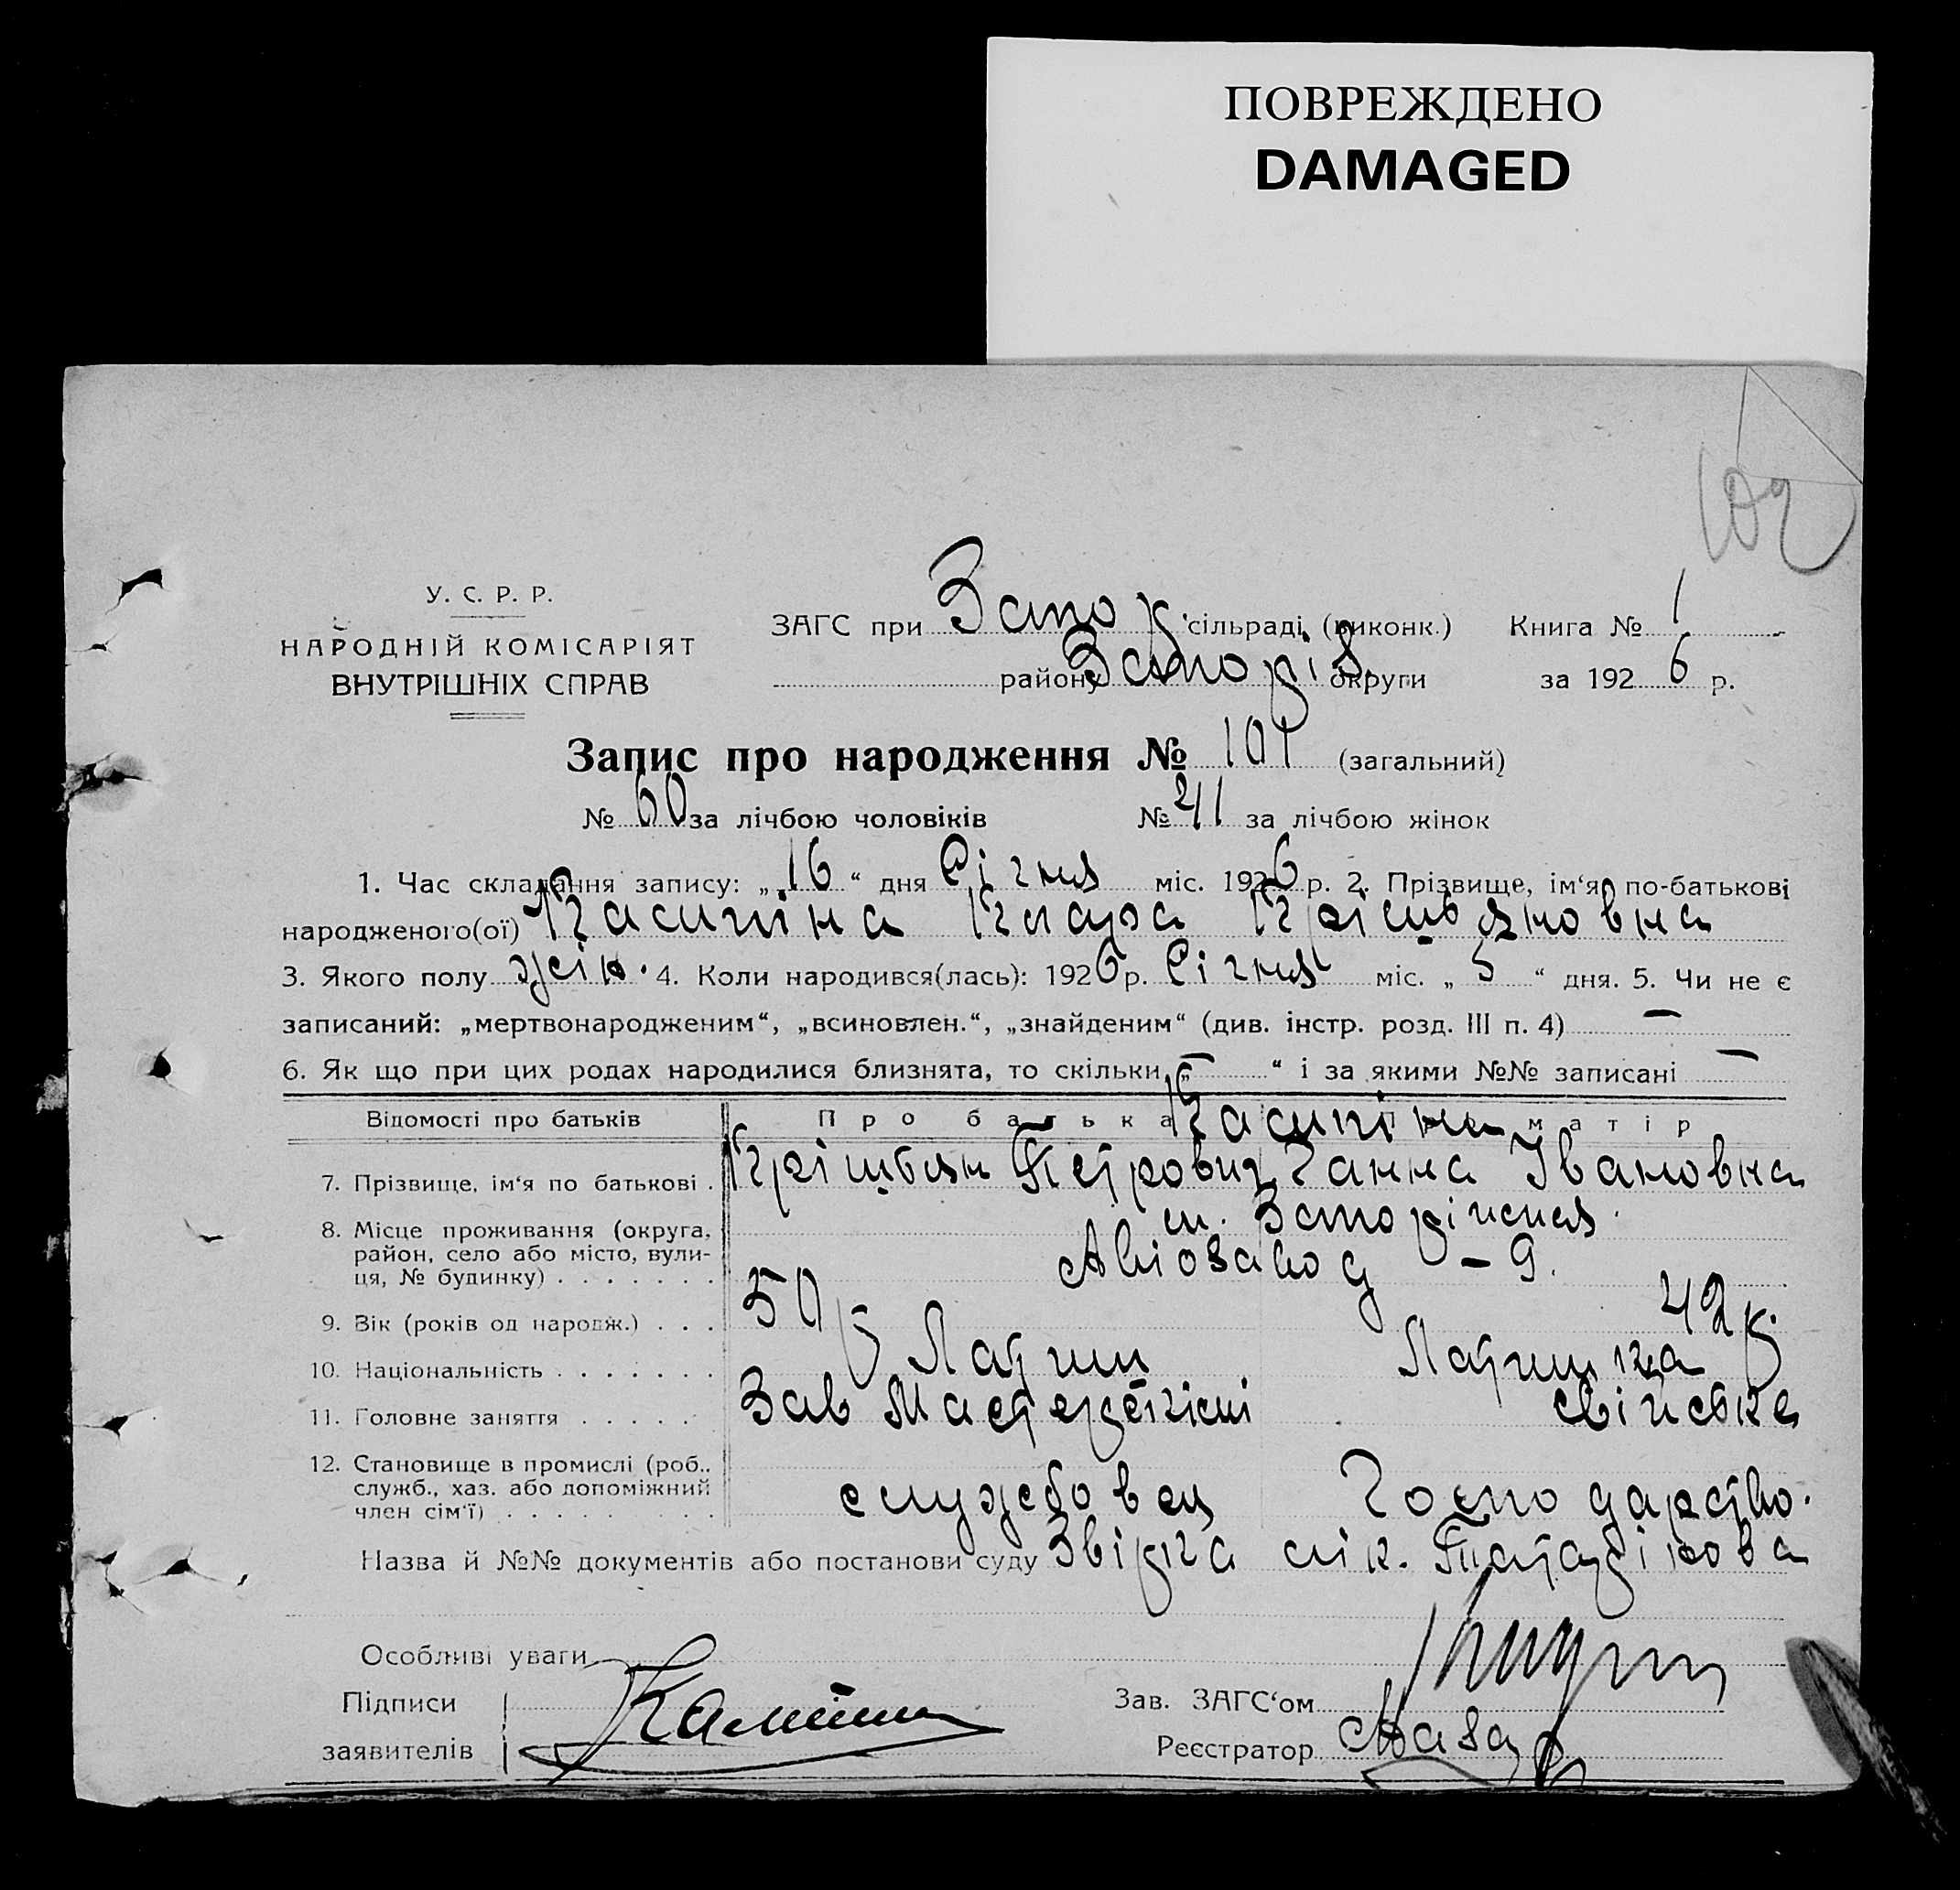 ПОВРЕЖДЕНО
DAMAGED
102
У. С. Р. Р.
НАРОДНІЙ КОМІСАРІЯТ
ВНУТРІШНІХ СПРАВ
ЗАГС при Запор сільраді (виконк.) Книга № 1
району Запорів округи за 1926 р.
Запис про народження № 101 (загальний)
№ 60 за лічбою чоловіків № 41 за лічбою жінок
1. Час складання запису: „16“ дня Січня міс. 1926 р. 2. Прізвище, ім'я, по-батькові
народженого(ої) Клара
3. Якого полу жін. 4. Коли народився(лась): 1926 р. Січня міс. „5“ дня. 5. Чи не є
записаний: „мертвонародженим“, „всиновлен.“, „знайденим“ (див. інстр. розд. III п. 4) —
6. Як що при цих родах народилися близнята, то скільки „—“ і за якими №№ записані —
Відомості про батьків Про батька матір
7. Прізвище, ім'я по батькові . Петрович Ганна Івановна
8. Місце проживання (округа, район, село або місто, вулиця, № будинку) . . . . . . . м. Запоріжжя. Авіозавод – 9.
9. Вік (років од народж.) . . . 50 р 42 р.
10. Національність . . . . . . . Латиш Латишка
11. Головне заняття . . . . . Зав свійське
12. Становище в промислі (роб., служб., хаз. або допоміжний член сім'ї) . . . . . . . . . службовец Господарство.
Назва й №№ документів або постанови суду лік.
Особливі уваги
Підписи Зав. ЗАГС'ом
заявителів Реєстратор